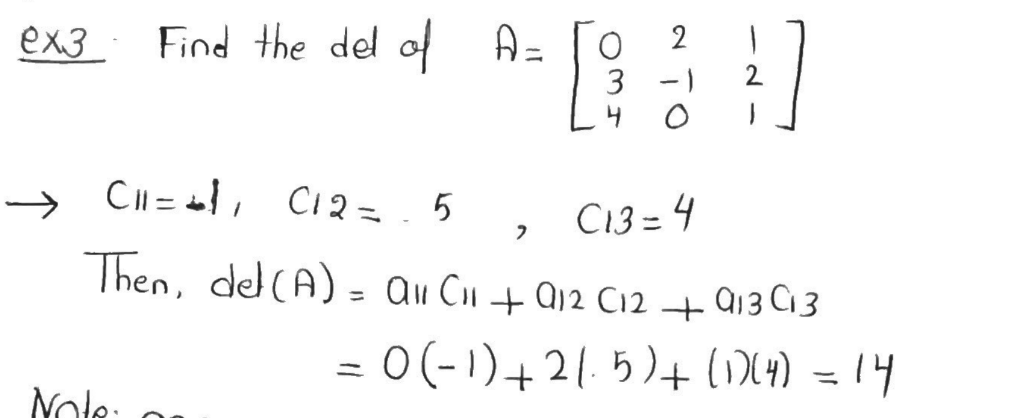 ex3 Find the det of A = [ 0 2 1
3 -1 2
4 0 1 ]
→ C11 = -1, C12 = 5, C13 = 4
Then, det(A) = a11 C11 + a12 C12 + a13 C13
= 0(-1) + 2(5) + (1)(4) = 14
Note: